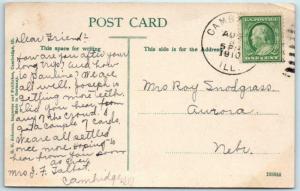 POST CARD
This space for writing
This side is for the Address.
Dear Friend:-
How are you after your
long ride? And how
is Pauline? We are
all well. Joseph is
getting more teeth.
Did you hear from
any of the crowd. I
got a couple of cards.
We are all settled
once more. Hoping to
hear from you soon
Mrs J. F. Talbot
Cambridge
CAMB
AUG
5 PM
1910
ILL.
Mrs Roy Snodgrass
Aurora
Nebr.